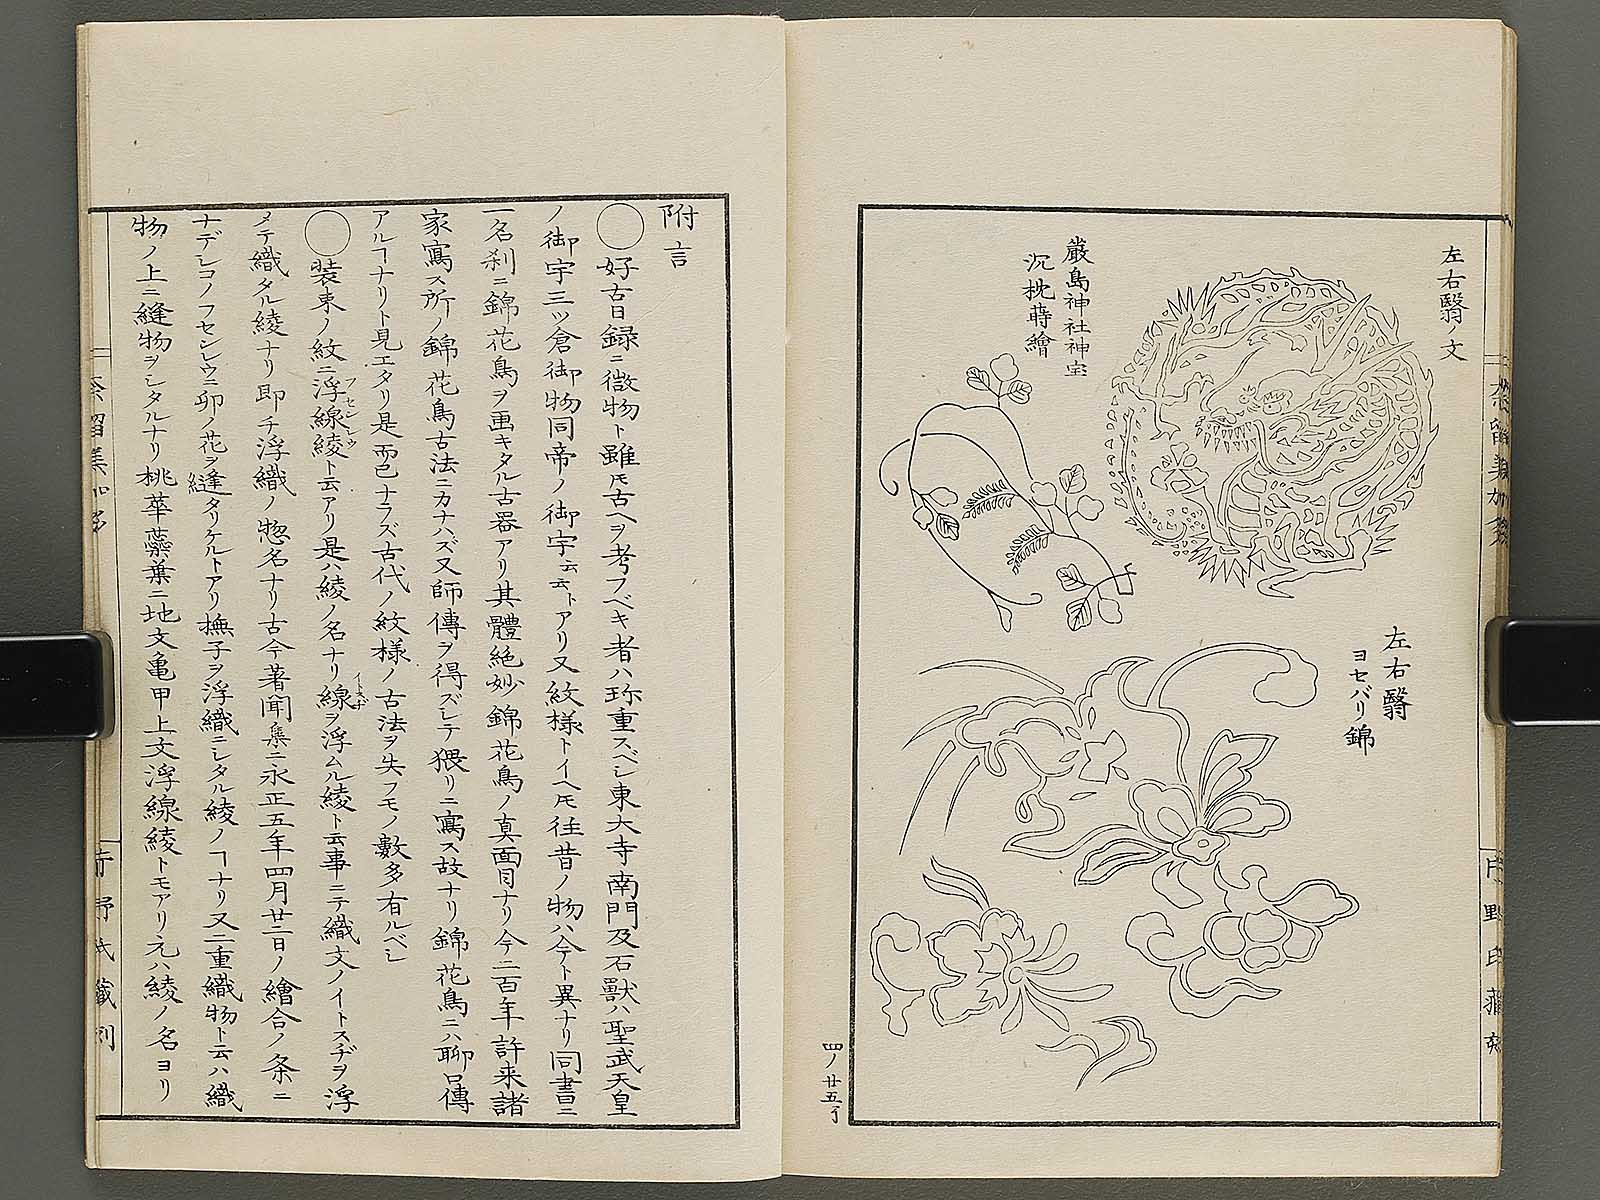 左右翳ノ文
嚴島神社神宝
沉枕蒔繪
左右翳
ヨセバリ錦
四ノ廿五了
附言
◯好古日録ニ微物ト雖𪜈古ヘヲ考フベキ者ハ珎重スベシ東大寺南門及石獸ハ聖武天皇
ノ御宇三ツ倉御物同帝ノ御宇云云トアリ又紋様トイヘ𪜈往昔ノ物ハ今ト異ナリ同書ニ
一名刹ニ錦花鳥ヲ画キタル古器アリ其體絶妙錦花鳥ノ真面目ナリ今二百年許来諸
家寫ス所ノ錦花鳥古法ニカナハズ又師傳ヲ得ズシテ猥リニ寫ス故ナリ錦花鳥ニハ聊口傳
アルヿナリト見エタリ是而已ナラズ古代ノ紋様ノ古法ヲ失フモノ數多有ルベシ
◯装束ノ紋ニ浮線綾ト云アリ是ハ綾ノ名ナリ線ヲ浮ムル綾ト云事ニテ織文ノイトスヂヲ浮
フセンレウ
イトスヂ
メテ織タル綾ナリ即チ浮織ノ惣名ナリ古今著聞集ニ永正五年四月廿二日ノ繪合ノ条ニ
ナデシコノフセンレウニ卯ノ花ヲ縫タリケルトアリ撫子ヲ浮織ニシタル綾ノヿナリ又二重織物ト云ハ織
物ノ上ニ縫物ヲシタルナリ桃華蘂葉ニ地文亀甲上文浮線綾トモアリ元ハ綾ノ名ヨリ